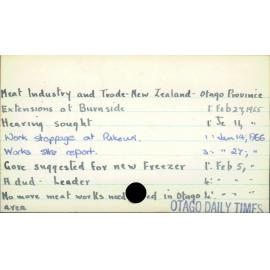 Meat Industry and Trade-New Zealand- Otago Province
Extensions at Burnside 1: Feb 27, 1955
Hearing sought 1: Je 11, "
Work stoppage at Pukeuri. 1: Jan 14, 1956
Works Site report. 3: " 27, "
Gore suggested for new Freezer 1: Feb 5, "
A dud- Leader 4: " " "
No more meat works needed in Otago 4: " " "
area
OTAGO DAILY TIMES